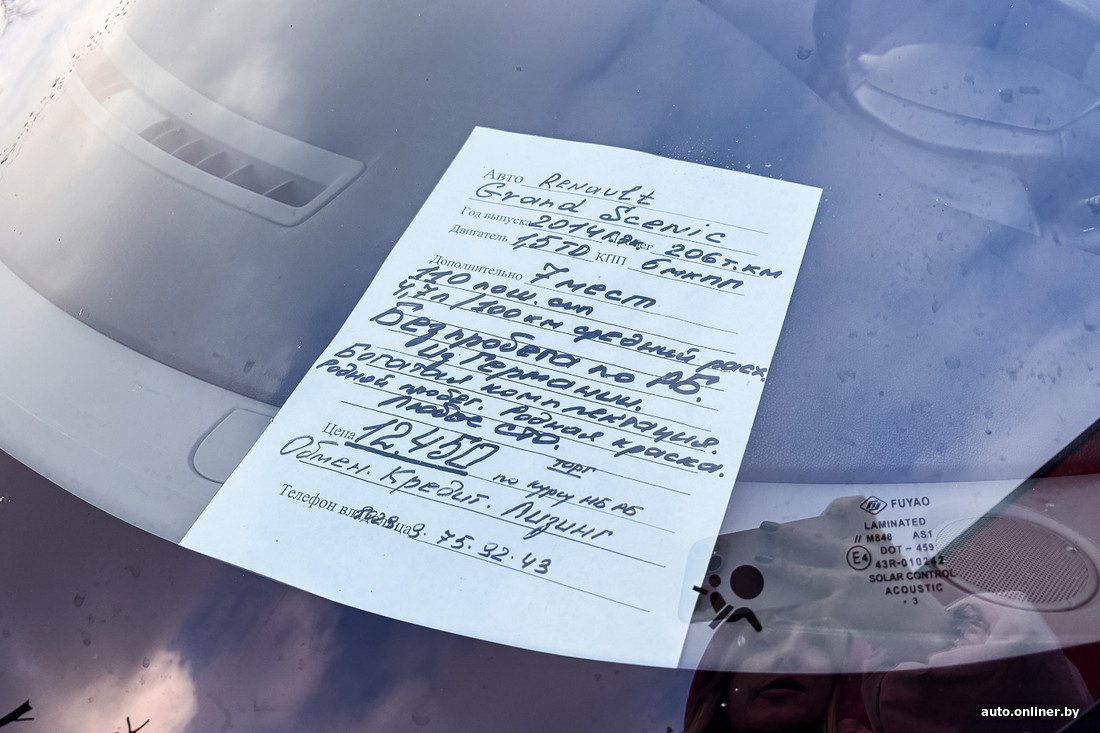 Авто Renault
Grand Scenic
Год выпуска 2014 206т.км
Двигатель 1,5TD КПП 6мкпп
Дополнительно 7 мест
110 лош. сил
4,7л/100км средний расх.
Без пробега по РБ.
Из Германии.
Богатая комплектация.
Родной пробег. Родная краска.
Любое СТО.
Цена 12.450 торг
по курсу НБ РБ
Обмен. Кредит. Лизинг
Телефон владельца 75.92.43
FUYAO
LAMINATED
// M848 AS1
DOT-459
E4 43R-010242
SOLAR CONTROL
ACOUSTIC
. 3
auto.onliner.by